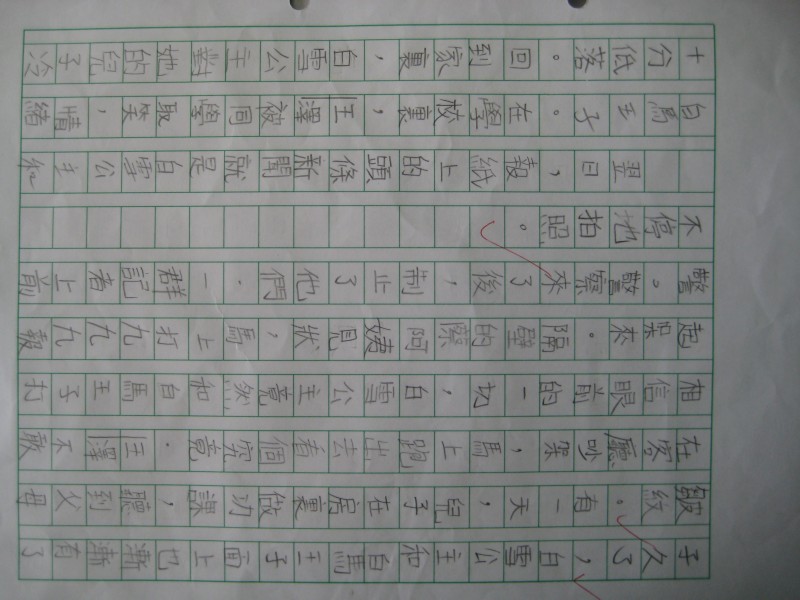 子久了，白雪公主和白馬王子面上也漸漸有了
皺紋。有一天，兒子在房裏做功課，聽到父母
在客廳吵架，馬上跑出去看個究竟．王澤不敢
相信眼前的一切，白雪公主竟然和白馬王子打
起架來．隔壁的蔡阿姨見狀，馬上打九九九報
警。警察來了後，制止了他們．一群記者上前
不停地拍照。
翌日，報紙上的頭條新聞就是白雪公主和
白馬王子。在學校裏，王澤被同學取笑，情緒
十分低落。回到家裏，白雪公主對她的兒子冷